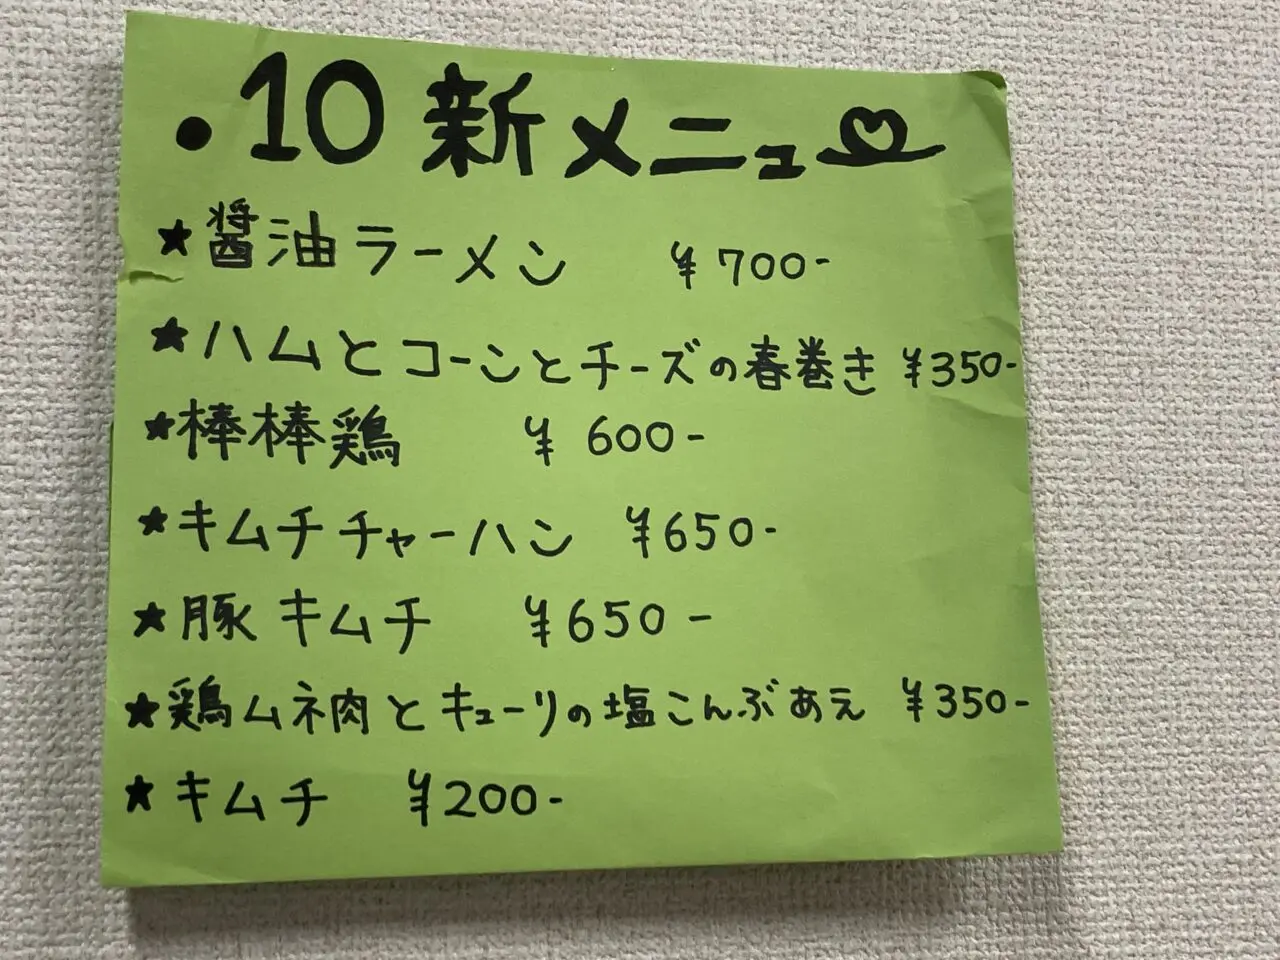 ・10 新メニュー
★醤油ラーメン ¥700-
★ハムとコーンとチーズの春巻き ¥350-
★棒棒鶏 ¥600-
★キムチチャーハン ¥650-
★豚キムチ ¥650-
★鶏ムネ肉とキューリの塩こんぶあえ ¥350-
★キムチ ¥200-